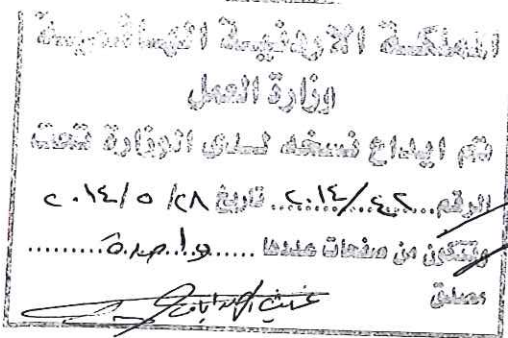 المملكة الاردنية الهاشمية
وزارة العمل
تم ايداع نسخه لدى الوزارة تحت
الرقم ٤٢/٢٠١٤ تاريخ ٢٨/٥/٢٠١٤
وتتكون من صفحات عددها واحدة
مصادق